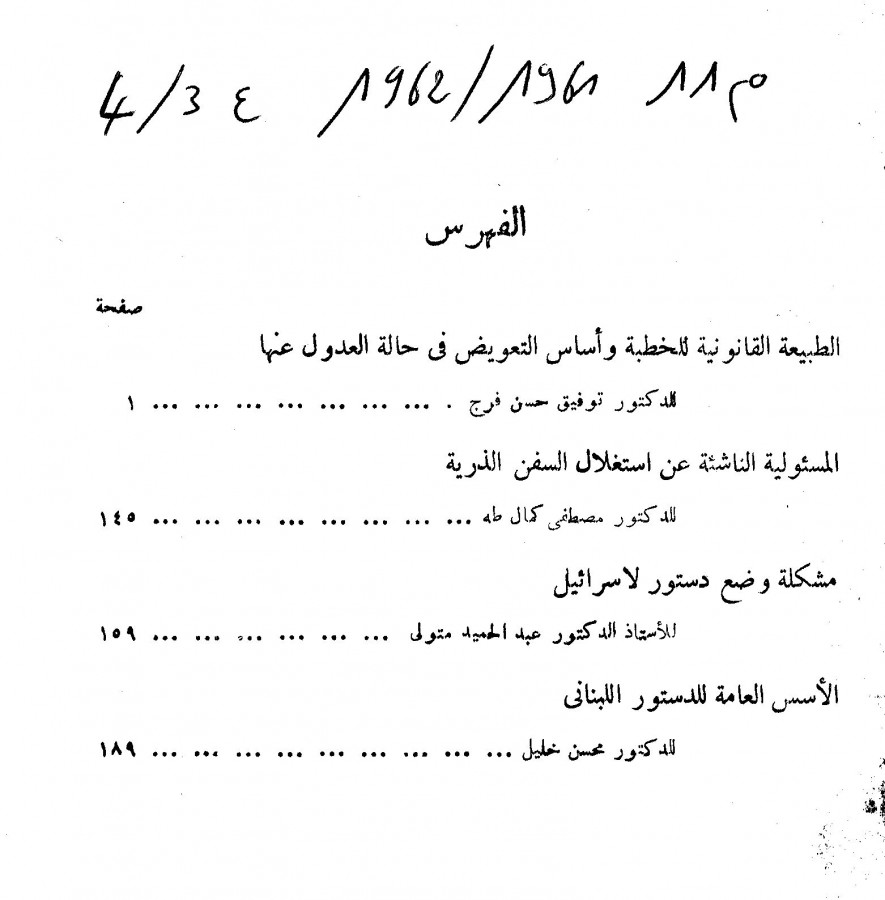 م 11 1961/1962 ع 3/4
الفهرس
صفحة
الطبيعة القانونية للخطبة وأساس التعويض فى حالة العدول عنها
للدكتور توفيق حسن فرج . ... ... ... ... ... ... ... ١
المسئولية الناشئة عن استغلال السفن الذرية
للدكتور مصطفى كمال طه ... ... ... ... ... ... ... ... ١٤٥
مشكلة وضع دستور لاسرائيل
للأستاذ الدكتور عبد الحميد متولى ... ... ... ... ... ... ١٥٩
الأسس العامة للدستور اللبنانى
للدكتور محسن خليل ... ... ... ... ... ... ... ... ... ١٨٩